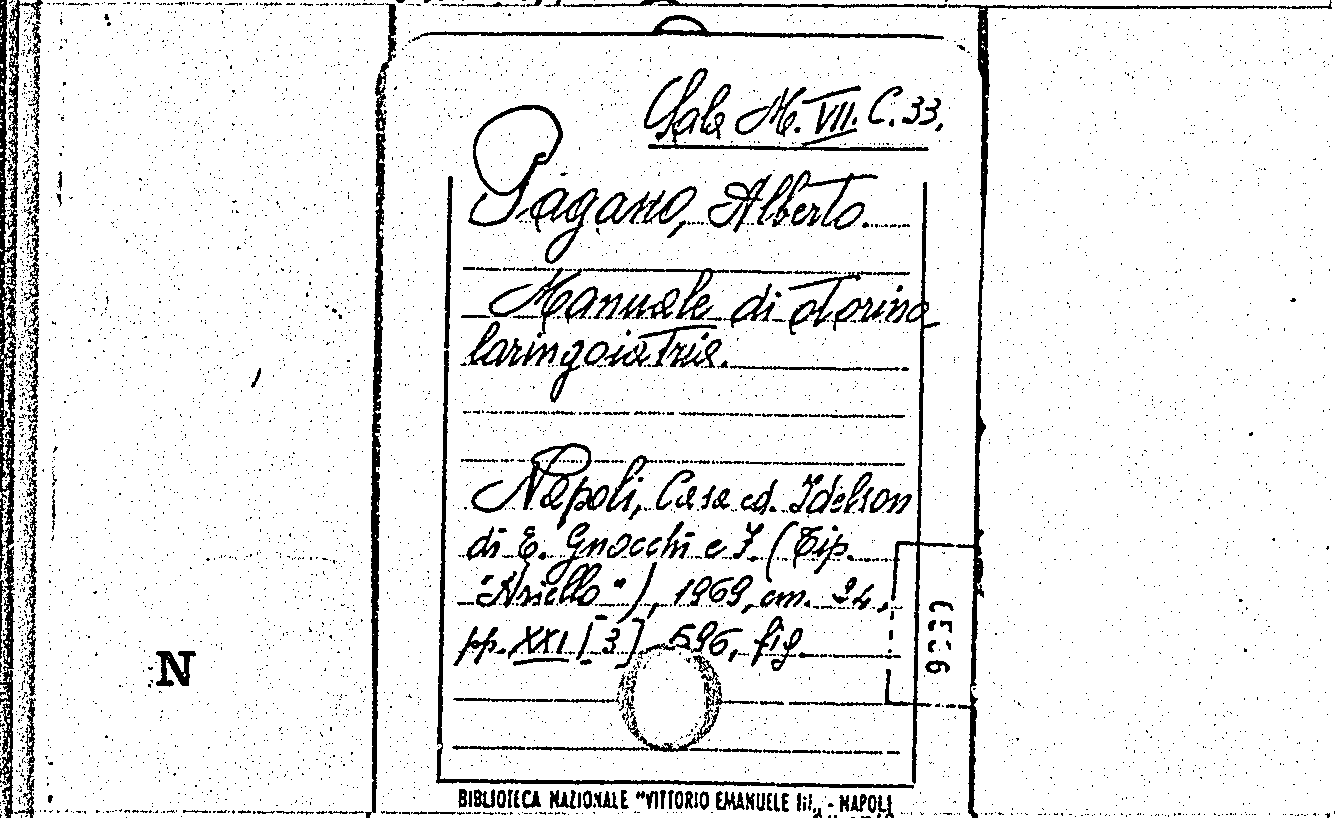 Sala M. VII. C. 33.
Pagano, Alberto.
Manuale di otorino
laringoiatria.
Napoli, Casa ed. Idelson
di E. Gnocchi e F. (Tip.
"Aniello"), 1969, cm. 24,
pp. XXI [3] 596, fig.
N
BIBLIOTECA NAZIONALE "VITTORIO EMANUELE III„ - NAPOLI